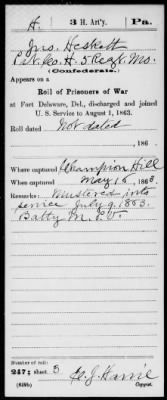 H. 3 H. Art'y. Pa.
Jno. Heskett
Pvt. Co. H. 5 Regt. Mo.
(Confederate.)
Appears on a
Roll of Prisoners of War
at Fort Delaware, Del., discharged and joined
U. S. Service to August 1, 1863.
Roll dated
Not dated
, 186
Where captured Champion Hill
When captured May 16, 1863.
Remarks: Mustered into
service July 9, 1863.
Batty M.
Number of roll:
247; sheet 3
(639b) Copyist.